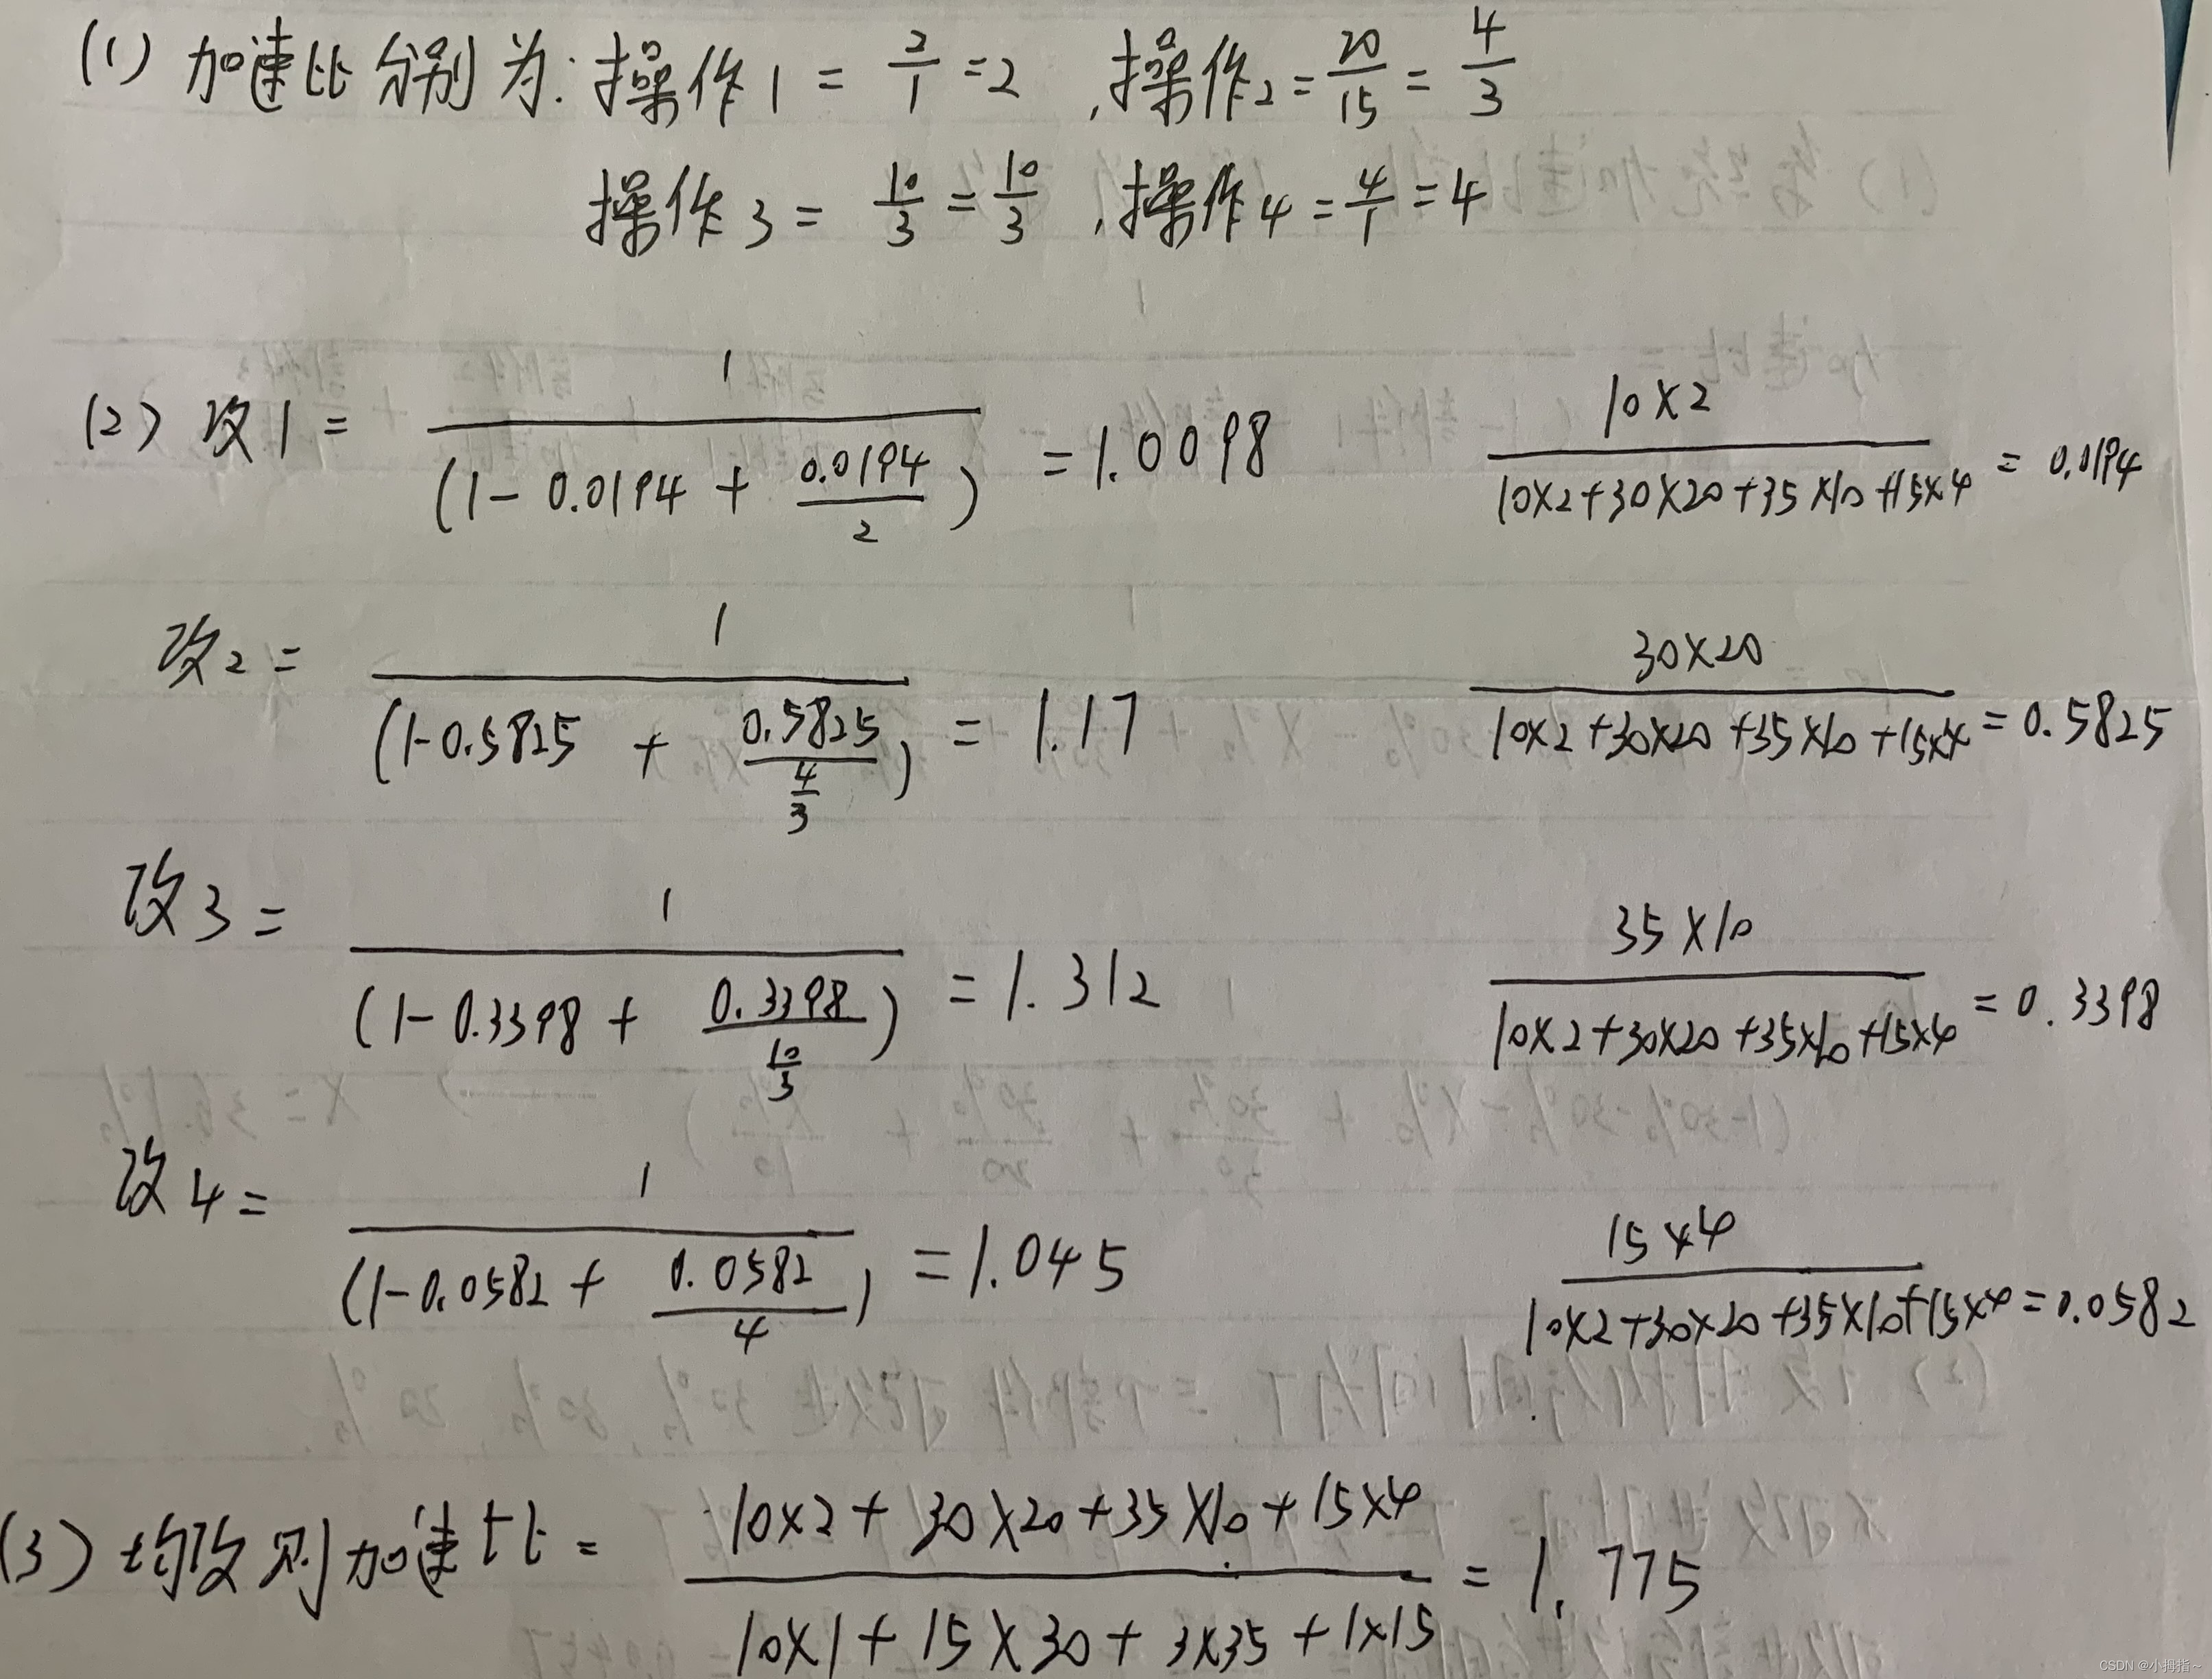 (1) 加速比分别为: 操作1 = 2/1 = 2 , 操作2 = 20/15 = 4/3
操作3 = 10/3 = 10/3 , 操作4 = 4/1 = 4
(2) 改1 = 1/(1-0.0194 + 0.0194/2) = 1.0098
10×2/(10×2+30×20+35×10+15×4) = 0.0194
改2 = 1/(1-0.5825 + 0.5825/(4/3)) = 1.17
30×20/(10×2+30×20+35×10+15×4) = 0.5825
改3 = 1/(1-0.3398 + 0.3398/(10/3)) = 1.312
35×10/(10×2+30×20+35×10+15×4) = 0.3398
改4 = 1/(1-0.0582 + 0.0582/4) = 1.045
15×4/(10×2+30×20+35×10+15×4) = 0.0582
(3) 均改则加速比 = (10×2+30×20+35×10+15×4)/(10×1+15×30+3×35+1×15) = 1.775
CSDN @小拇指~